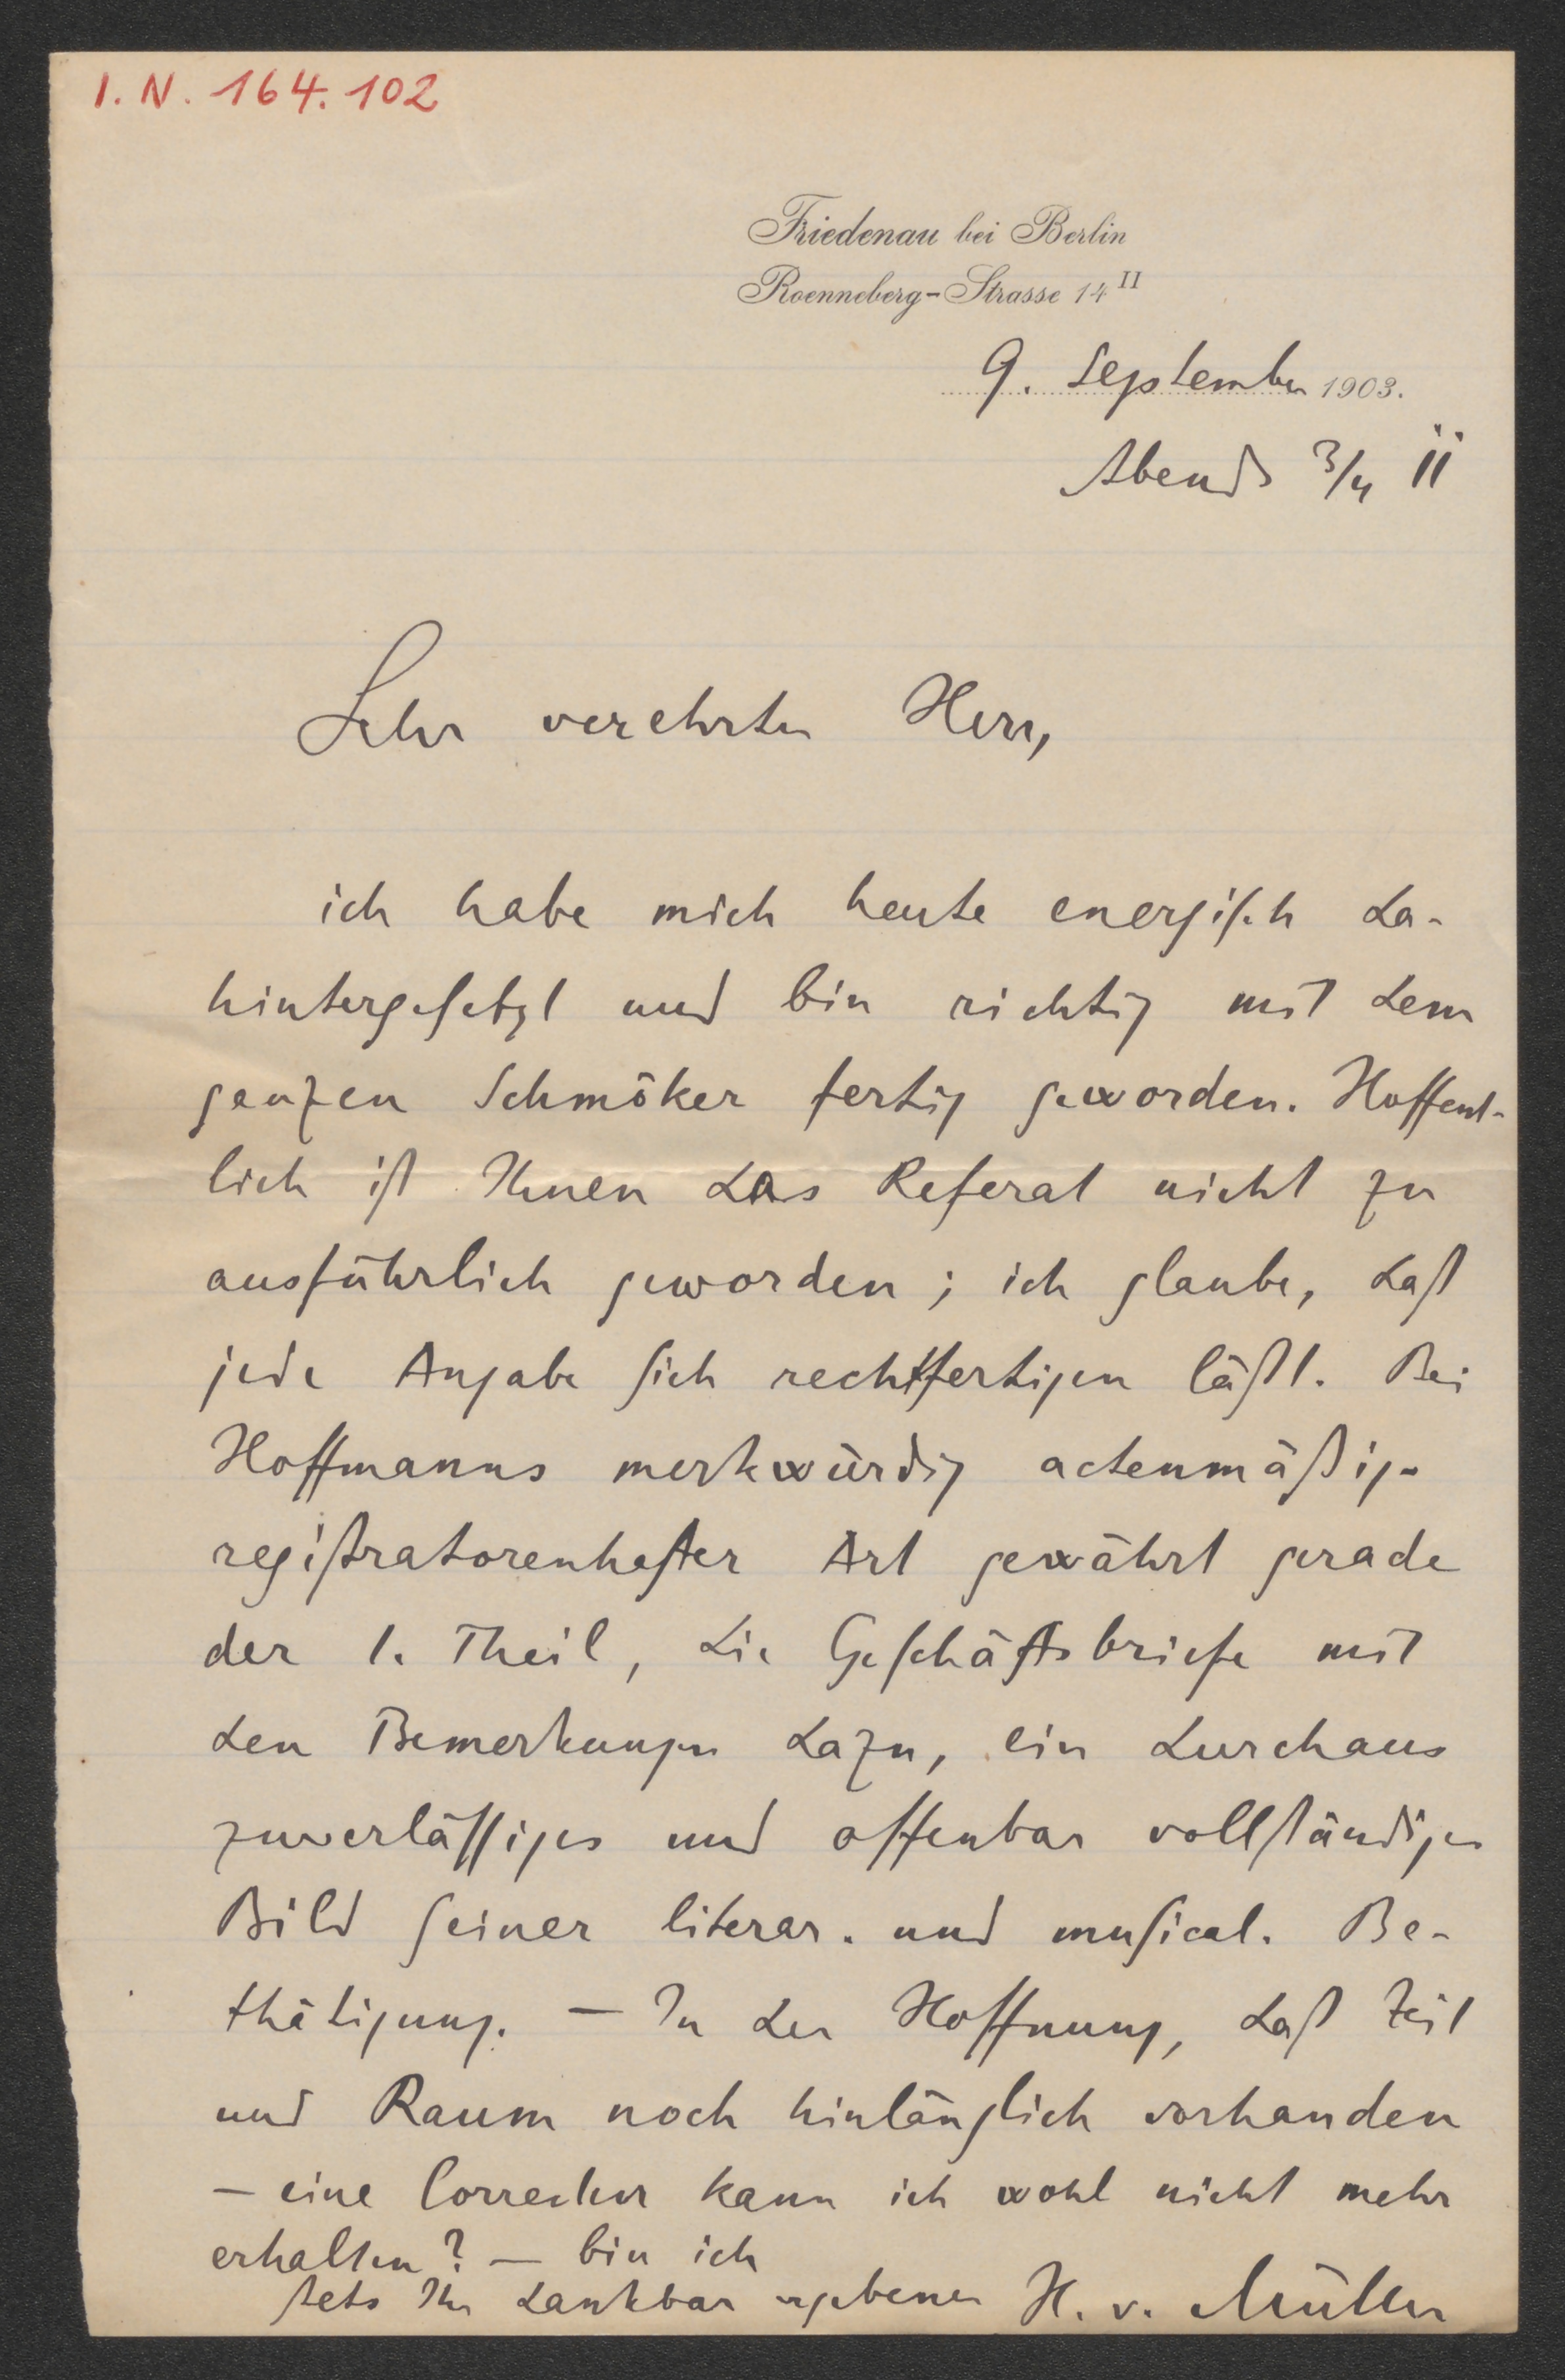 I. N. 164.102
Friedenau bei Berlin
Roenneberg-Strasse 14 II
9. September 1903.
Abends 3/4 11
Sehr verehrter Herr,
ich habe mich heute energisch da-
hintergesetzt und bin richtig mit dem
ganzen Schmöker fertig geworden. Hoffent-
lich ist Ihnen das Referat nicht zu
ausführlich geworden; ich glaube, daß
jede Angabe sich rechtfertigen läßt. Bei
Hoffmanns merkwürdig actenmäßig-
registratorenhafter Art gewährt gerade
der 1. Theil, die Geschäftsbriefe mit
den Bemerkungen dazu, ein durchaus
zuverlässiges und offenbar vollständiges
Bild seiner literar. und musical. Be-
thätigung. — In der Hoffnung, daß Zeit
und Raum noch hinlänglich vorhanden
— eine Correctur kann ich wohl nicht mehr
erhalten? — bin ich
stets Ihr dankbar ergebener H. v. Müller